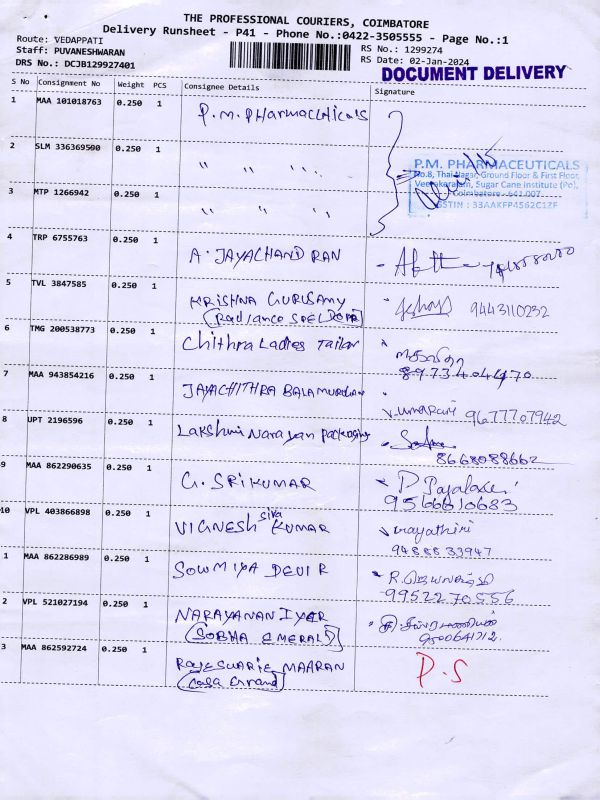 THE PROFESSIONAL COURIERS, COIMBATORE
Delivery Runsheet - P41 - Phone No.:0422-3505555 - Page No.:1
Route: VEDAPPATI
Staff: PUVANESHWARAN
DRS No.: DCJB129927401
RS No.: 1299274
RS Date: 02-Jan-2024
DOCUMENT DELIVERY
S No Consignment No Weight PCS Consignee Details Signature
1 MAA 101018763 0.250 1 P.M. PHarmaceuticals
2 SLM 336369500 0.250 1 " " "
P.M. PHARMACEUTICALS
No.8, Thai Nagar, Ground Floor & First Floor,
Veerakeralam, Sugar Cane Institute (Po),
Coimbatore - 641 007.
GSTIN : 33AAKFP4562C1ZF
3 MTP 1266942 0.250 1 " " "
4 TRP 6755763 0.250 1 A. JAYACHANDRAN
5 TVL 3847585 0.250 1 KRISHNA GURUSAMY 9443110232
(Radiance
6 TMG 200538773 0.250 1 Chithra Ladies Tailor
8973404470
7 MAA 943854216 0.250 1 JAYACHITHRA BALAMURUGAN
V.umarani 9677707942
8 UPT 2196596 0.250 1 Lakshmi Narayan Packaging
8668088662
9 MAA 862290635 0.250 1 G. SRIKUMAR
9566610683
10 VPL 403866898 0.250 1 VIGNESH siva KUMAR
9488833947
1 MAA 862286989 0.250 1 SOWMIYA DEVI R
9952270556
2 VPL 521027194 0.250 1 NARAYANAN IYER
(SOBHA EMERALD)
9500641712
3 MAA 862592724 0.250 1 RAJESWARIE MAARAN P.S
(Casa Grand)